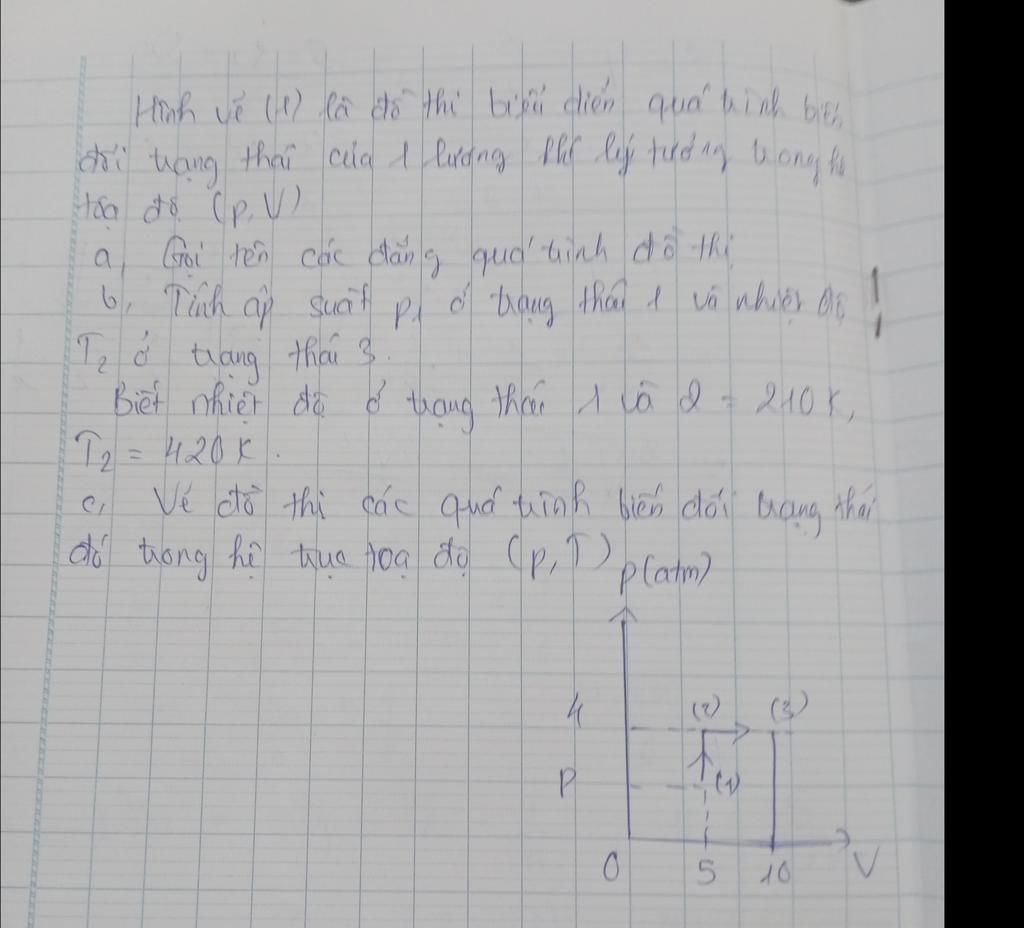 Hình vẽ (1) là đồ thị biểu diễn quá trình biến
đổi trạng thái của 1 lượng khí lý tưởng trong hệ
tọa độ (p,V)
a, Gọi tên các đẳng quá trình đồ thị
b, Tính áp suất p1 ở trạng thái 1 và nhiệt độ
T2 ở trạng thái 3.
Biết nhiệt độ ở trạng thái 1 và 2 = 210K,
T2 = 420K.
c, Vẽ đồ thị các quá trình biến đổi trạng thái
đó trong hệ trục toạ độ (p,T)
p(atm)
4 (2) (3)
p (1)
0 5 10 V